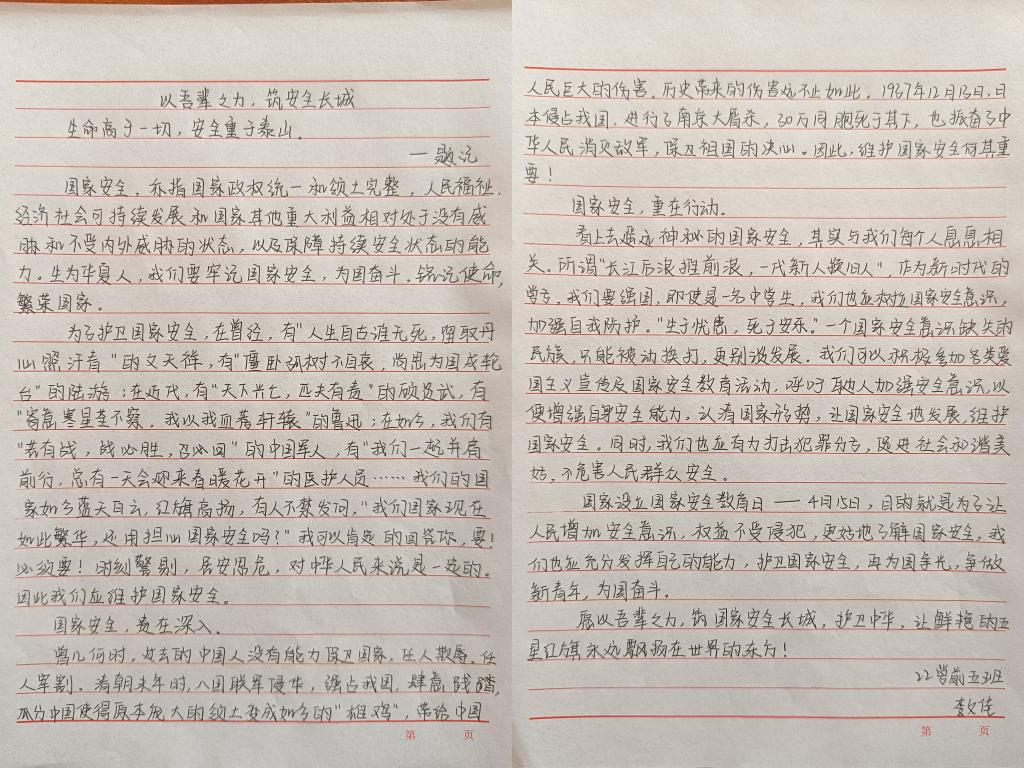 以吾辈之力，筑安全长城
生命高于一切，安全重于泰山。
—题记
国家安全，亦指国家政权统一和领土完整，人民福祉、
经济社会可持续发展和国家其他重大利益相对处于没有威
胁和不受内外威胁的状态，以及保障持续安全状态的能
力。生为华夏人，我们要牢记国家安全，为国奋斗，铭记使命，
繁荣国家。
为了护卫国家安全，在曾经，有"人生自古谁无死，留取丹
心照汗青"的文天祥，有"僵卧孤村不自哀，尚思为国戍轮
台"的陆游；在近代，有"天下兴亡，匹夫有责"的顾炎武，有
"寄意寒星荃不察，我以我血荐轩辕"的鲁迅；在如今，我们有
"若有战，战必胜，召必回"的中国军人，有"我们一起并肩
前行，总有一天会迎来春暖花开"的医护人员……我们的国
家如今蓝天白云，红旗高扬，有人不禁发问，"我们国家现在
如此繁华，还用担心国家安全吗？"我可以肯定的回答你，要！
必须要！时刻警剔，居安思危，对中华人民来说是一定的。
因此我们应维护国家安全。
国家安全，贵在深入。
曾几何时，过去的中国人没有能力保卫国家，任人欺辱，任
人宰割。清朝末年时，八国联军侵华，强占我国，肆意践踏，
瓜分中国使得原本庞大的领土变成如今的"雄鸡"，带给中国
人民巨大的伤害。历史带来的伤害远不止如此。1937年12月13日，日
本侵占我国，进行了南京大屠杀，30万同胞死于其下，也振奋了中
华人民消灭敌军，保卫祖国的决心。因此，维护国家安全何其重
要！
国家安全，重在行动。
看上去遥远神秘的国家安全，其实与我们每个人息息相
关。所谓"长江后浪推前浪，一代新人换旧人"，作为新时代的
学子，我们要强国，即使是一名中学生，我们也应树指国家安全意识，
加强自我防护。"生于忧患，死于安乐。"一个国家安全意识缺失的
民族，只能被动挨打，更别谈发展。我们可以积极参加各类爱
国主义宣传及国家安全教育活动，呼吁他人加强安全意识，以
便增强自身安全能力，认清国家形势，让国家安全地发展，维护
国家安全。同时，我们也应有力打击犯罪分子，促进社会和谐美
好，不危害人民群众安全。
国家设立国家安全教育日——4月15日，目的就是为了让
人民增加安全意识，权益不受侵犯，更好地了解国家安全，我
们也应充分发挥自己的能力，护卫国家安全，再为国争光，争做
新青年，为国奋斗。
愿以吾辈之力，筑国家安全长城，护卫中华，让鲜艳的五
星红旗永远飘扬在世界的东方！
22学前五班
李文佳
第 页
第 页